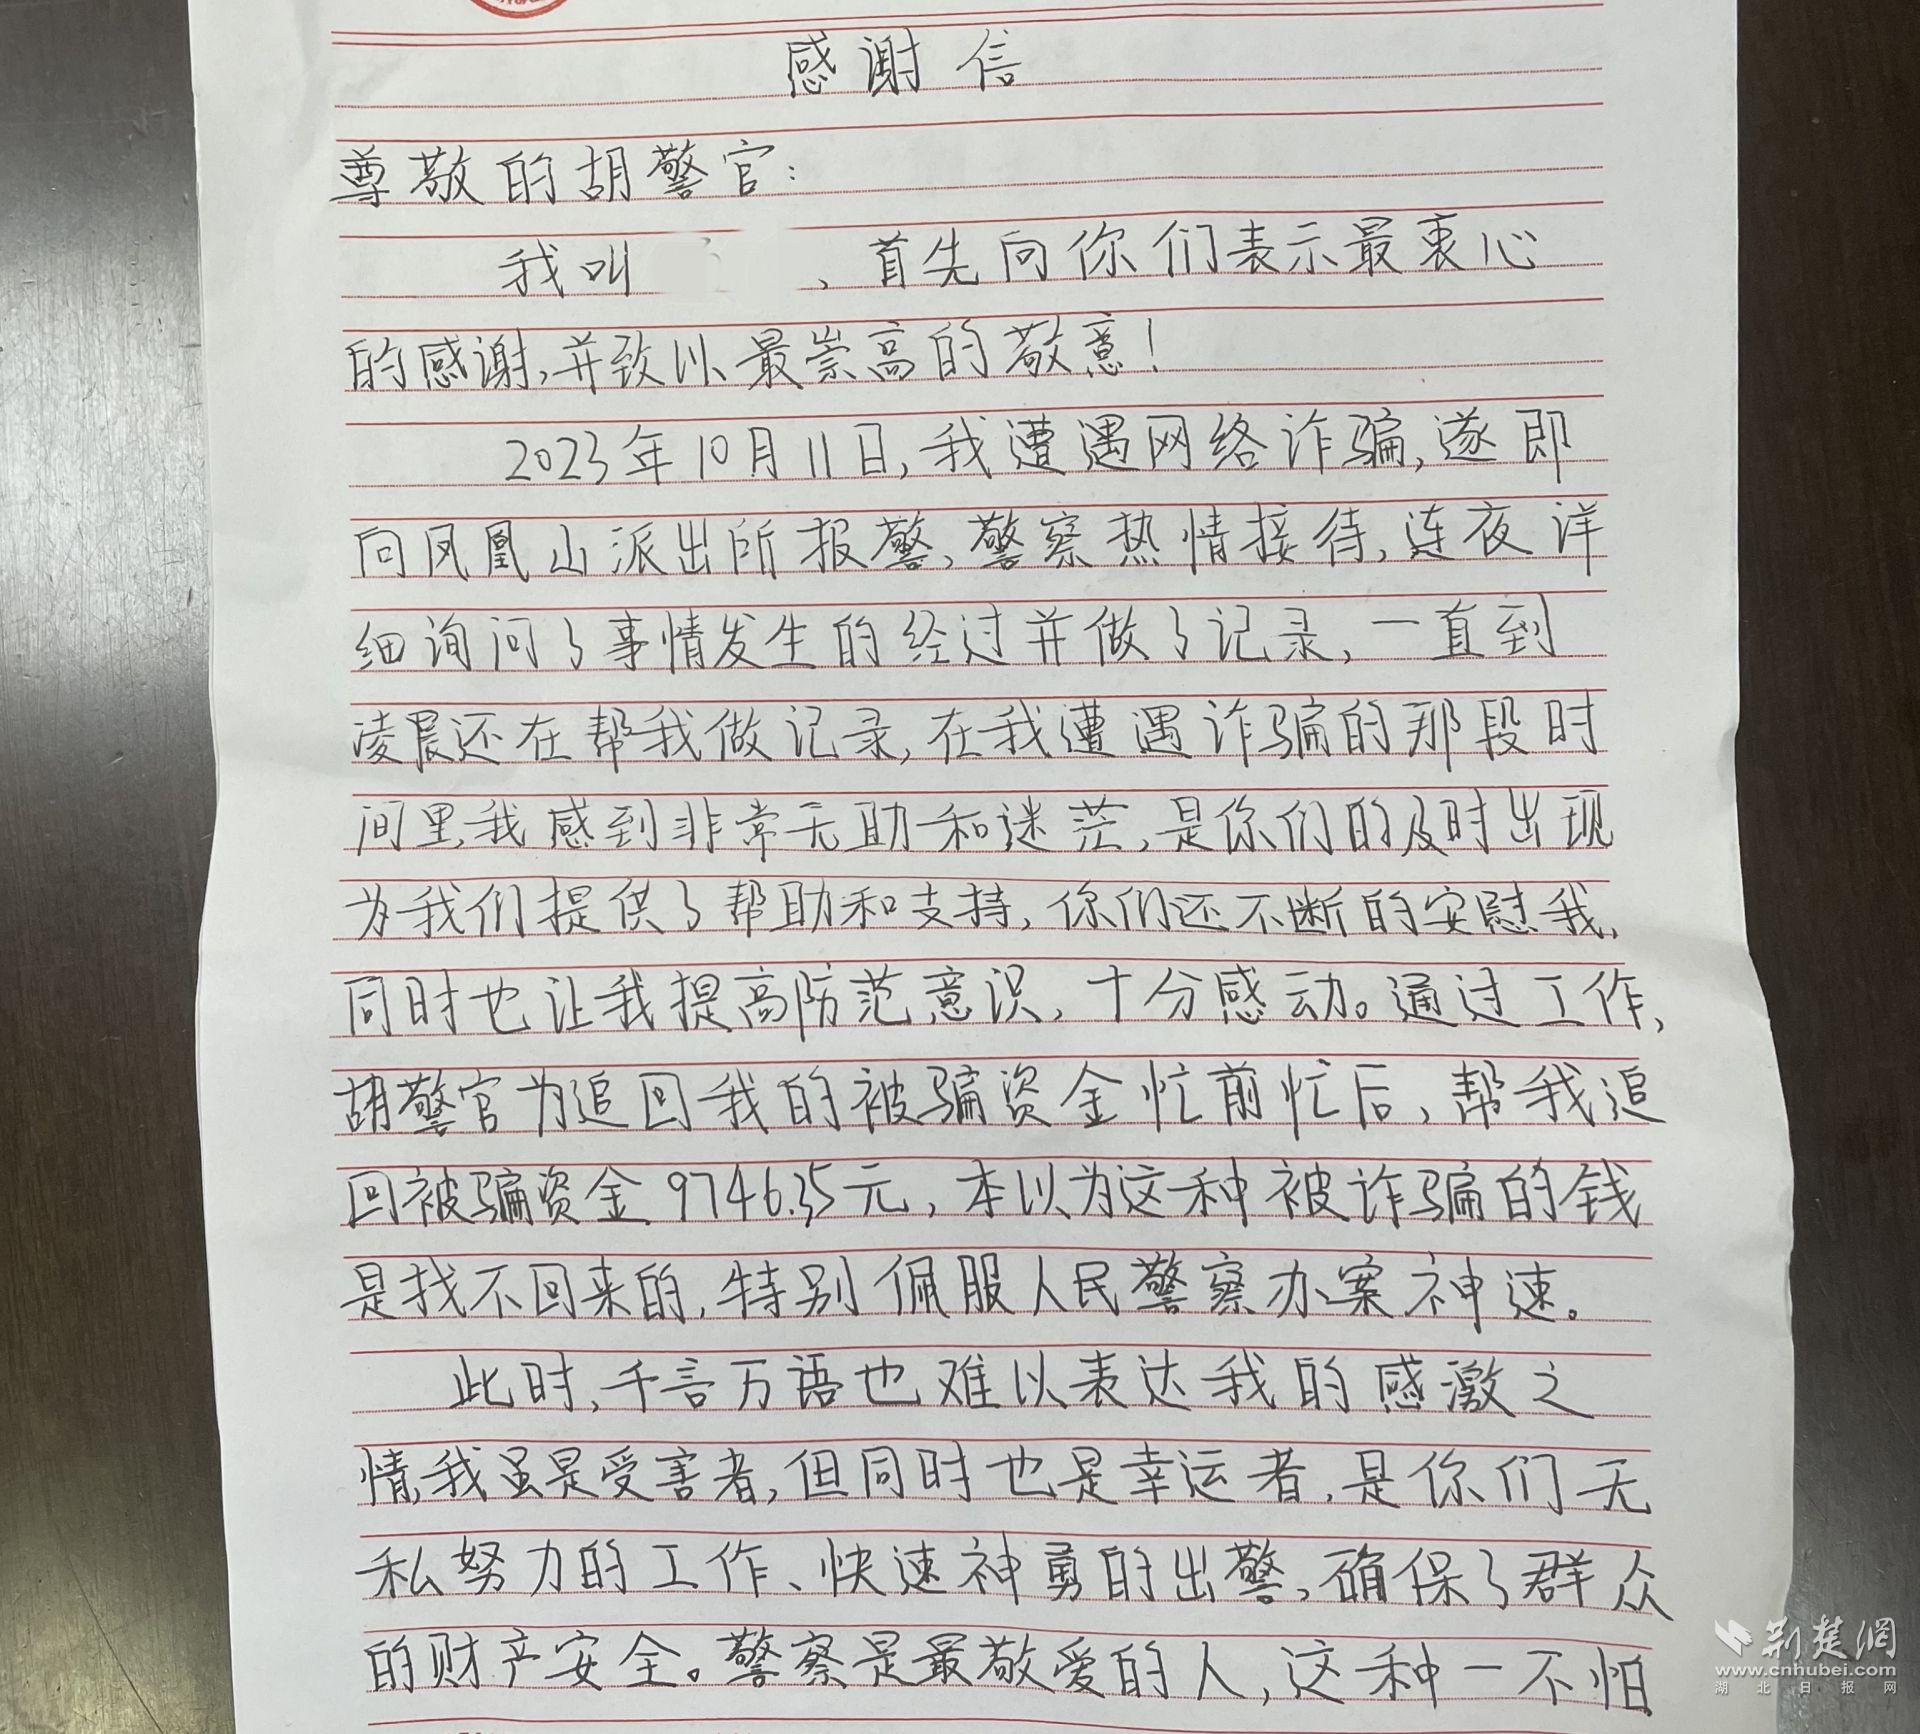 感谢信
尊敬的胡警官：
我叫　　，首先向你们表示最衷心
的感谢，并致以最崇高的敬意！
2023年10月11日，我遭遇网络诈骗，遂即
向凤凰山派出所报警，警察热情接待，连夜详
细询问了事情发生的经过并做了记录，一直到
凌晨还在帮我做记录，在我遭遇诈骗的那段时
间里，我感到非常无助和迷茫，是你们的及时出现
为我们提供了帮助和支持，你们还不断的安慰我，
同时也让我提高防范意识，十分感动。通过工作，
胡警官为追回我的被骗资金忙前忙后，帮我追
回被骗资金9746.35元，本以为这种被诈骗的钱
是找不回来的，特别佩服人民警察办案神速。
此时，千言万语也难以表达我的感激之
情，我虽是受害者，但同时也是幸运者，是你们无
私努力的工作、快速神勇的出警，确保了群众
的财产安全。警察是最敬爱的人，这种一不怕
荆楚网
www.cnhubei.com
湖北日报网